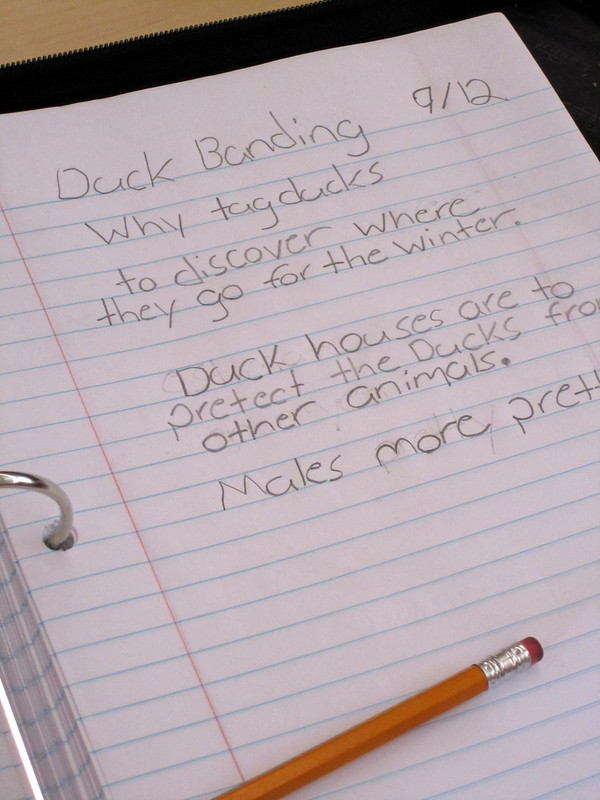 9/12
Duck Banding
Why tag ducks
to discover where
they go for the winter.
Duck houses are to
pretect the Ducks
other animals.
Males more